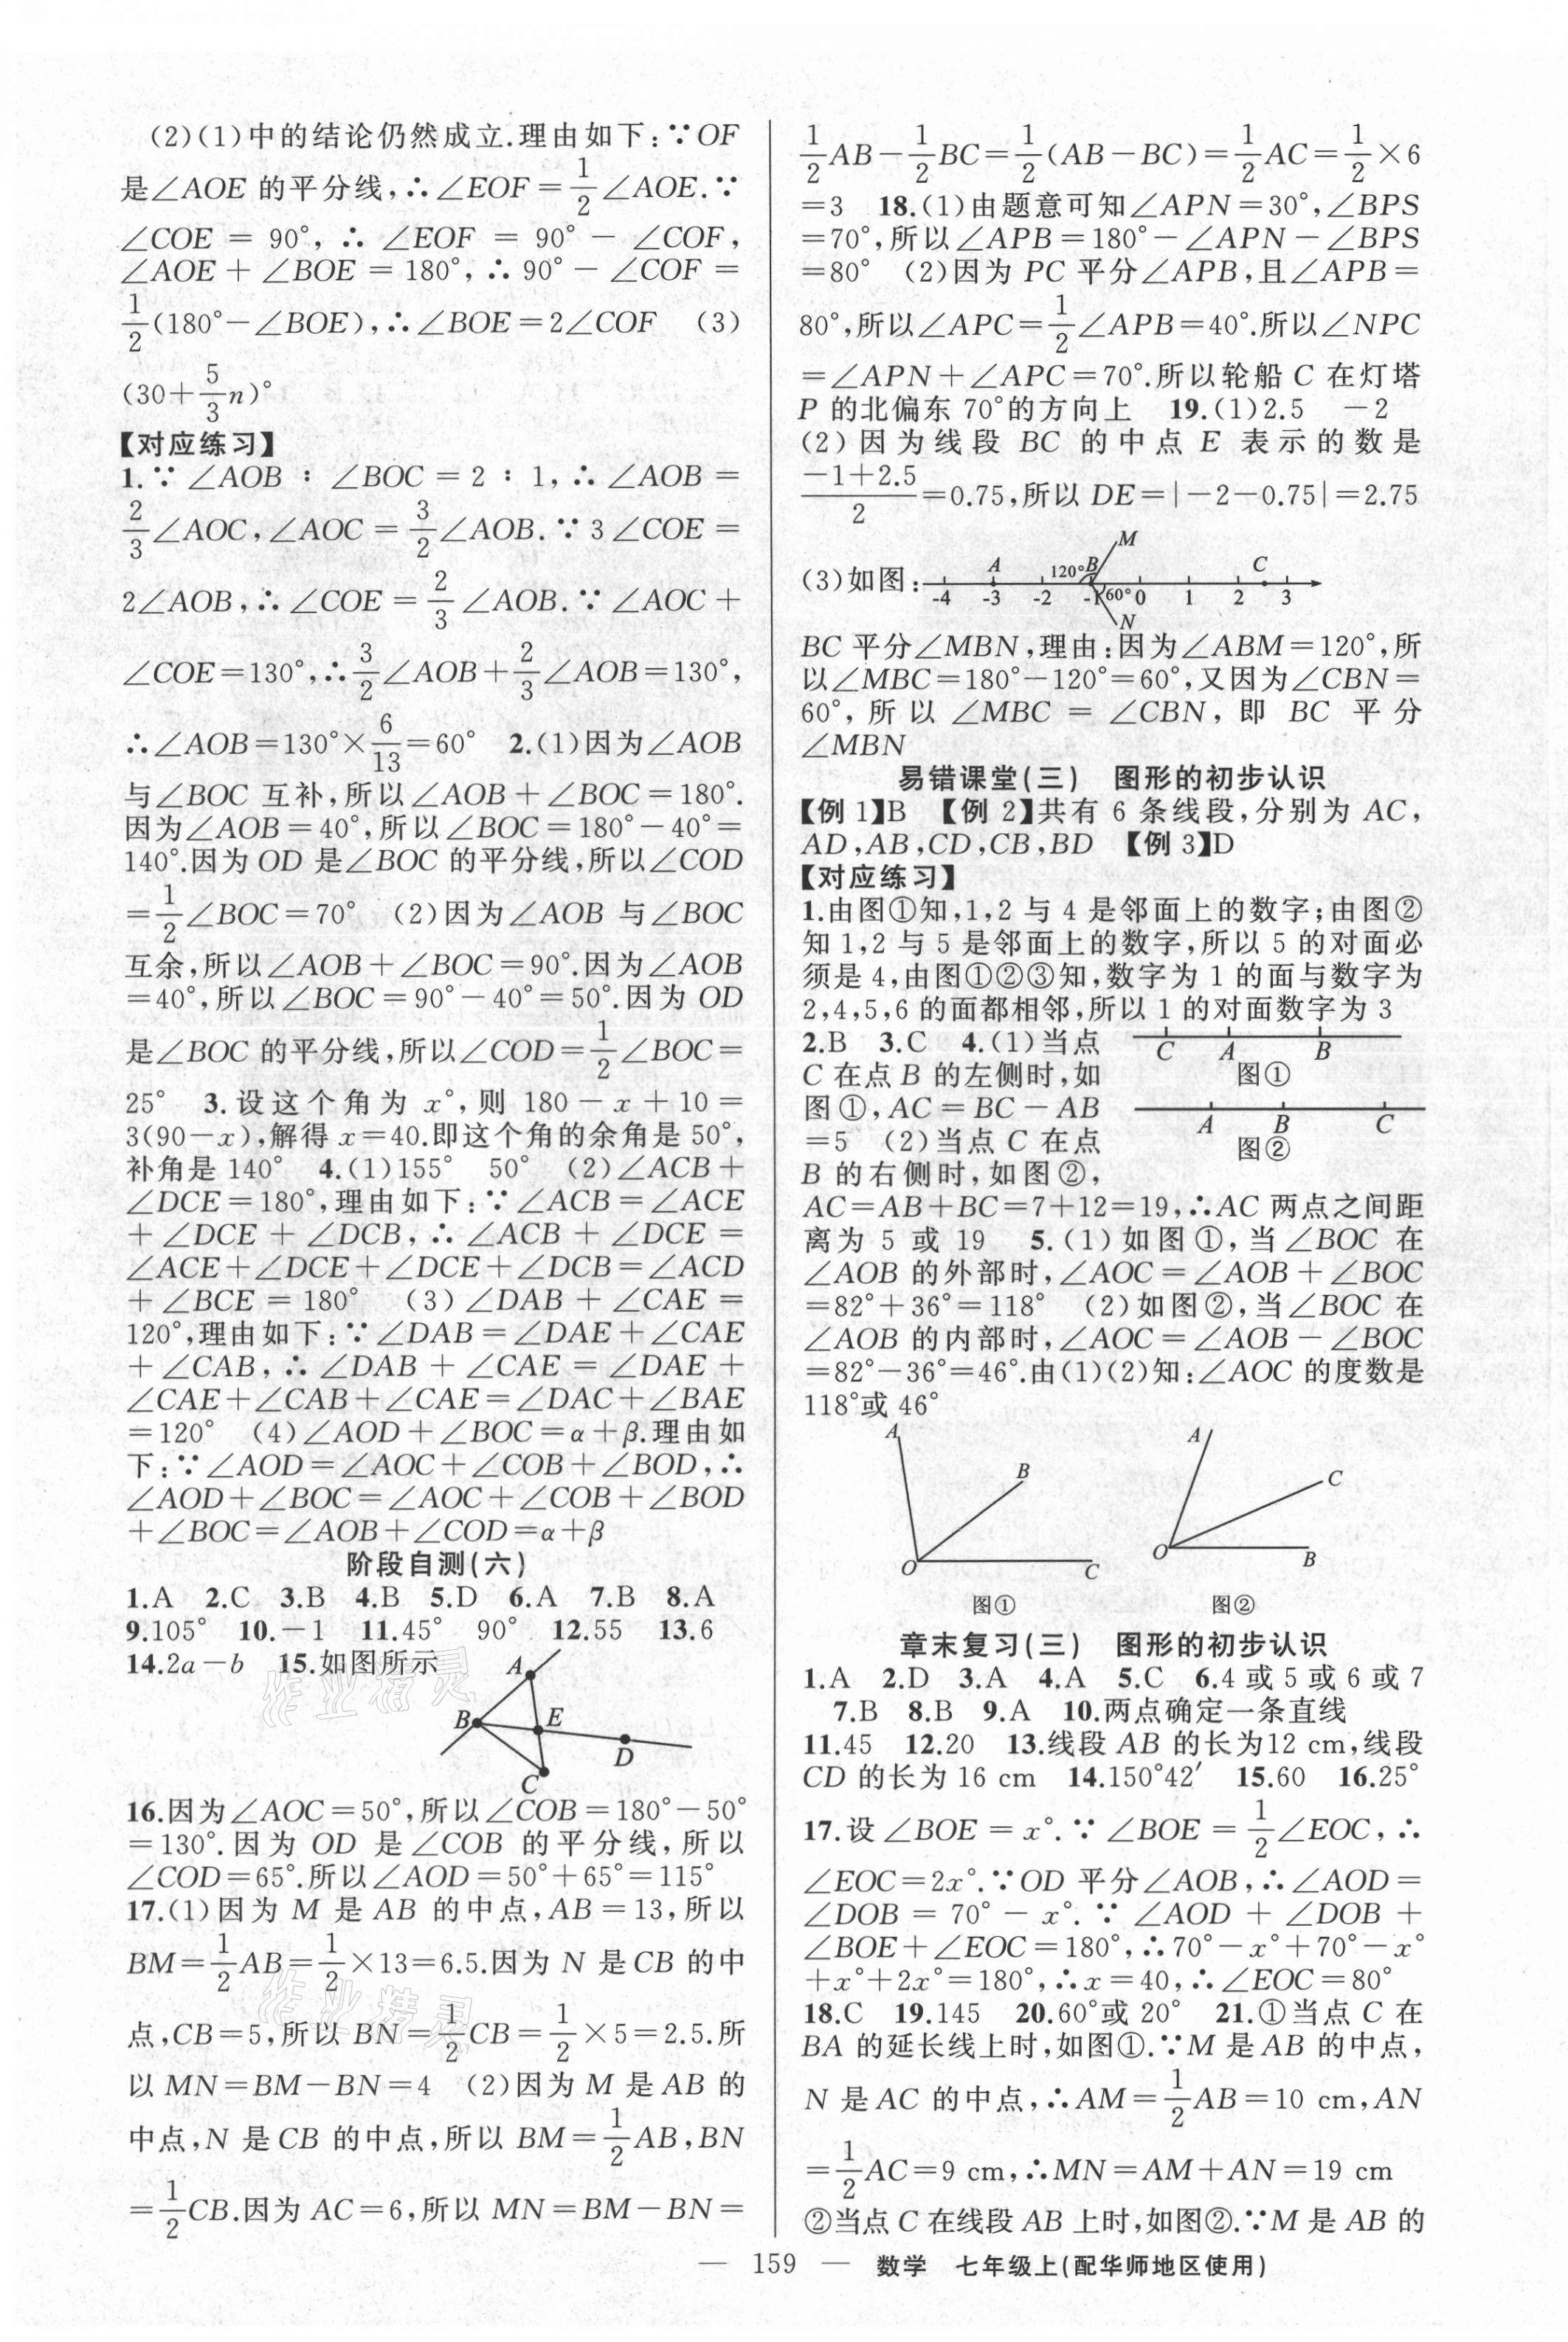 (2)(1)中的结论仍然成立.理由如下:∵OF
是∠AOE 的平分线,∴∠EOF=1/2∠AOE.∵
∠COE = 90°, ∴ ∠EOF = 90° − ∠COF,
∠AOE+∠BOE=180°,∴90°−∠COF=
1/2(180°−∠BOE),∴∠BOE=2∠COF (3)
(30+5/3n)°
【对应练习】
1.∵∠AOB∶∠BOC=2∶1,∴∠AOB=
2/3∠AOC,∠AOC=3/2∠AOB.∵3∠COE=
2∠AOB,∴∠COE=2/3∠AOB.∵∠AOC+
∠COE=130°,∴3/2∠AOB+2/3∠AOB=130°,
∴∠AOB=130°×6/13=60° 2.(1)因为∠AOB
与∠BOC 互补,所以∠AOB+∠BOC=180°.
因为∠AOB=40°,所以∠BOC=180°−40°=
140°.因为 OD 是∠BOC 的平分线,所以∠COD
=1/2∠BOC=70° (2)因为∠AOB 与∠BOC
互余,所以∠AOB+∠BOC=90°.因为∠AOB
=40°,所以∠BOC=90°−40°=50°.因为 OD
是∠BOC 的平分线,所以∠COD=1/2∠BOC=
25° 3.设这个角为 x°,则 180−x+10=
3(90−x),解得 x=40.即这个角的余角是 50°,
补角是 140° 4.(1)155° 50° (2)∠ACB+
∠DCE=180°,理由如下:∵∠ACB=∠ACE
+∠DCE+∠DCB,∴∠ACB+∠DCE=
∠ACE+∠DCE+∠DCE+∠DCB=∠ACD
+∠BCE=180° (3)∠DAB+∠CAE=
120°,理由如下:∵∠DAB=∠DAE+∠CAE
+∠CAB,∴∠DAB+∠CAE=∠DAE+
∠CAE+∠CAB+∠CAE=∠DAC+∠BAE
=120° (4)∠AOD+∠BOC=α+β.理由如
下:∵∠AOD=∠AOC+∠COB+∠BOD,∴
∠AOD+∠BOC=∠AOC+∠COB+∠BOD
+∠BOC=∠AOB+∠COD=α+β
阶段自测(六)
1.A 2.C 3.B 4.B 5.D 6.A 7.B 8.A
9.105° 10.−1 11.45° 90° 12.55 13.6
14.2a−b 15.如图所示
A
B
E
D
C
16.因为∠AOC=50°,所以∠COB=180°−50°
=130°.因为 OD 是∠COB 的平分线,所以
∠COD=65°.所以∠AOD=50°+65°=115°
17.(1)因为 M 是 AB 的中点,AB=13,所以
BM=1/2AB=1/2×13=6.5.因为 N 是 CB 的中
点,CB=5,所以 BN=1/2CB=1/2×5=2.5.所
以 MN=BM−BN=4 (2)因为 M 是 AB 的
中点,N 是 CB 的中点,所以 BM=1/2AB,BN
=1/2CB.因为 AC=6,所以 MN=BM−BN=
1/2AB−1/2BC=1/2(AB−BC)=1/2AC=1/2×6
=3 18.(1)由题意可知∠APN=30°,∠BPS
=70°,所以∠APB=180°−∠APN−∠BPS
=80° (2)因为 PC 平分∠APB,且∠APB=
80°,所以∠APC=1/2∠APB=40°.所以∠NPC
=∠APN+∠APC=70°.所以轮船 C 在灯塔
P 的北偏东 70°的方向上 19.(1)2.5 −2
(2)因为线段 BC 的中点 E 表示的数是
(−1+2.5)/2=0.75,所以 DE=|−2−0.75|=2.75
M
A 120° B C
(3)如图:
-4 -3 -2 -1 60° 0 1 2 3
N
BC 平分∠MBN,理由:因为∠ABM=120°,所
以∠MBC=180°−120°=60°,又因为∠CBN=
60°,所以∠MBC=∠CBN,即 BC 平分
∠MBN
易错课堂(三) 图形的初步认识
【例 1】B 【例 2】共有 6 条线段,分别为 AC,
AD,AB,CD,CB,BD 【例 3】D
【对应练习】
1.由图①知,1,2 与 4 是邻面上的数字;由图②
知 1,2 与 5 是邻面上的数字,所以 5 的对面必
须是 4,由图①②③知,数字为 1 的面与数字为
2,4,5,6 的面都相邻,所以 1 的对面数字为 3
2.B 3.C 4.(1)当点
C A B
C 在点 B 的左侧时,如
图①
图①,AC=BC−AB
A B C
=5 (2)当点 C 在点
图②
B 的右侧时,如图②,
AC=AB+BC=7+12=19,∴AC 两点之间距
离为 5 或 19 5.(1)如图①,当∠BOC 在
∠AOB 的外部时,∠AOC=∠AOB+∠BOC
=82°+36°=118° (2)如图②,当∠BOC 在
∠AOB 的内部时,∠AOC=∠AOB−∠BOC
=82°−36°=46°.由(1)(2)知:∠AOC 的度数是
118°或 46°
A B O C
图①
A C O B
图②
章末复习(三) 图形的初步认识
1.A 2.D 3.A 4.A 5.C 6.4 或 5 或 6 或 7
7.B 8.B 9.A 10.两点确定一条直线
11.45 12.20 13.线段 AB 的长为12 cm,线段
CD 的长为 16 cm 14.150°42′ 15.60 16.25°
17.设∠BOE=x°.∵∠BOE=1/2∠EOC,∴
∠EOC=2x°.∵OD 平分∠AOB,∴∠AOD=
∠DOB=70°−x°.∵∠AOD+∠DOB+
∠BOE+∠EOC=180°,∴70°−x°+70°−x°
+x°+2x°=180°,∴x=40,∴∠EOC=80°
18.C 19.145 20.60°或 20° 21.①当点 C 在
BA 的延长线上时,如图①.∵M 是 AB 的中点,
N 是 AC 的中点,∴AM=1/2AB=10 cm,AN
=1/2AC=9 cm,∴MN=AM+AN=19 cm
②当点 C 在线段 AB 上时,如图②.∵M 是 AB 的
— 159 — 数学 七年级上(配华师地区使用)
作业精灵
作业精灵